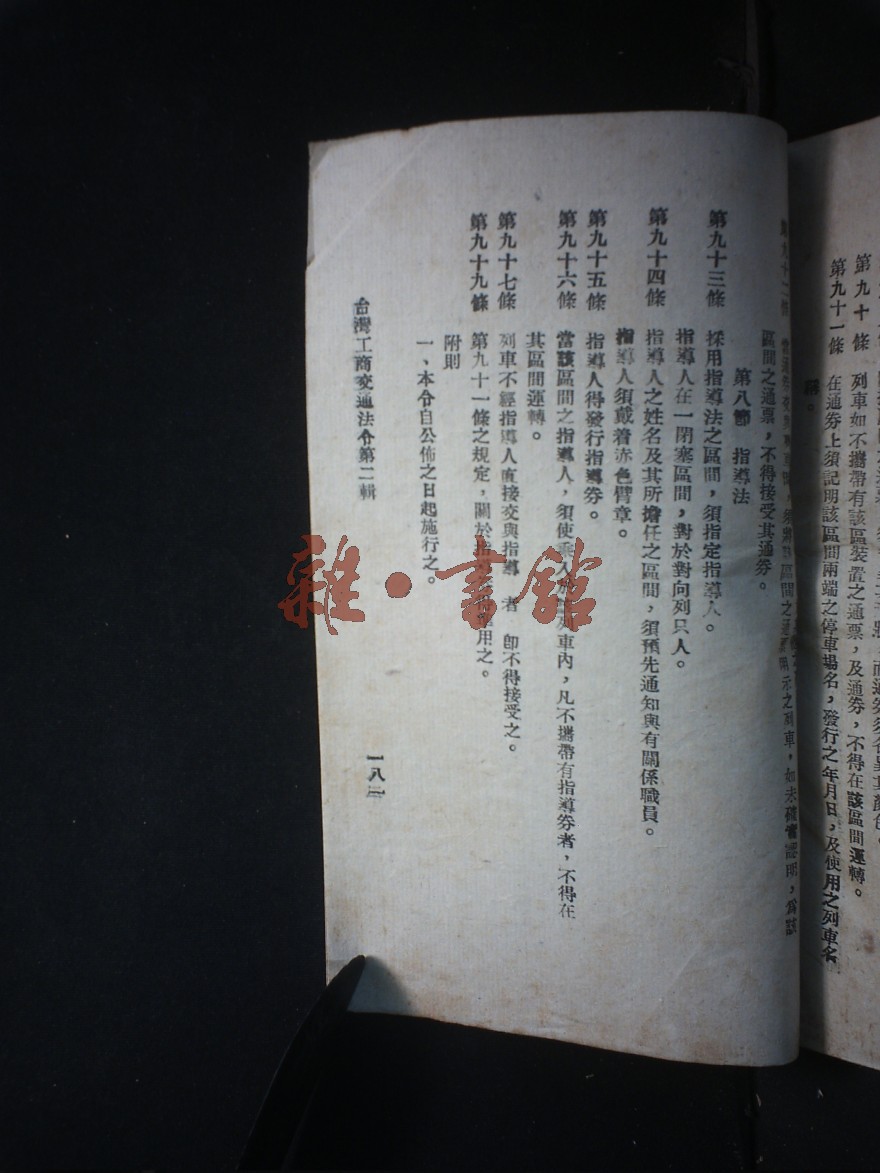 第九十條
列車如不攜帶有該區裝置之通票，及通券，不得在該區間運轉。
第九十一條
在通券上須記明該區間兩端之停車場名，發行之年月日，及使用之列車名
稱。
第九十二條
區間之通票，不得接受其通券。
第八節 指導法
第九十三條
採用指導法之區間，須指定指導人。
指導人在一閉塞區間，對於對向列只人。
第九十四條
指導人之姓名及其所擔任之區間，須預先通知與有關係職員。
指導人須戴着赤色臂章。
第九十五條
指導人得發行指導券。
第九十六條
當該區間之指導人，須使乘入於列車內，凡不攜帶有指導券者，不得在
其區間運轉。
第九十七條
列車不經指導人直接交與指導 者 卽不得接受之。
第九十九條
第九十一條之規定，關於指用之。
附則
一、本令自公佈之日起施行之。
台灣工商交通法令第二輯
一八二
雜·書館